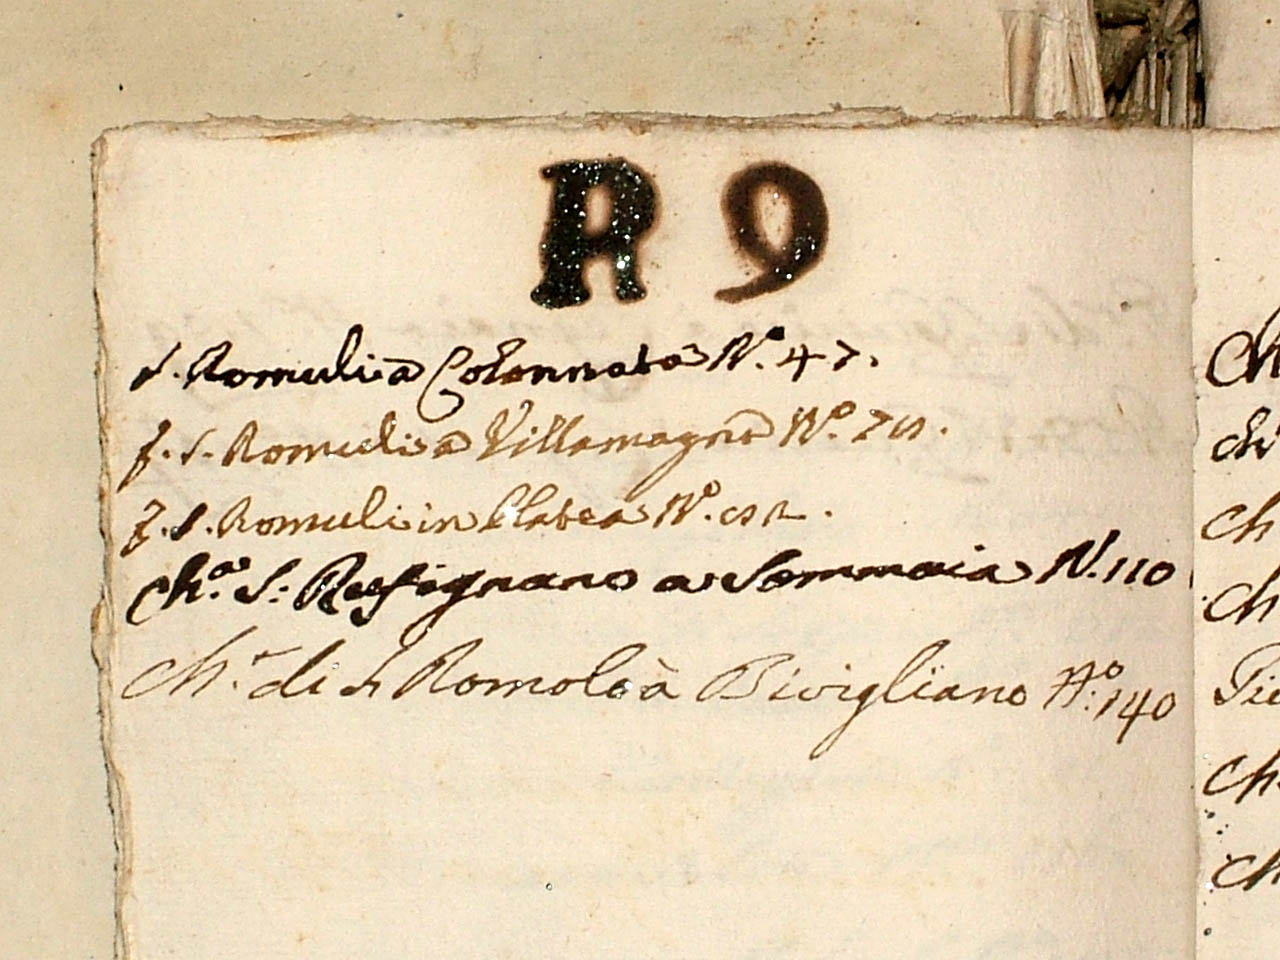 R 9
S. Romuli à Colonnata N.º 47.
J. S. Romuli à Villamagna N.º
J. S. Romuli in Platea N.º
Ch.ª S. Ruffignano a Sommaia N. 110
Ch.ª di S Romolo à Bivigliano N.º 140
Ch
Ch
Ch
Ch
Pie
Ch
Ch